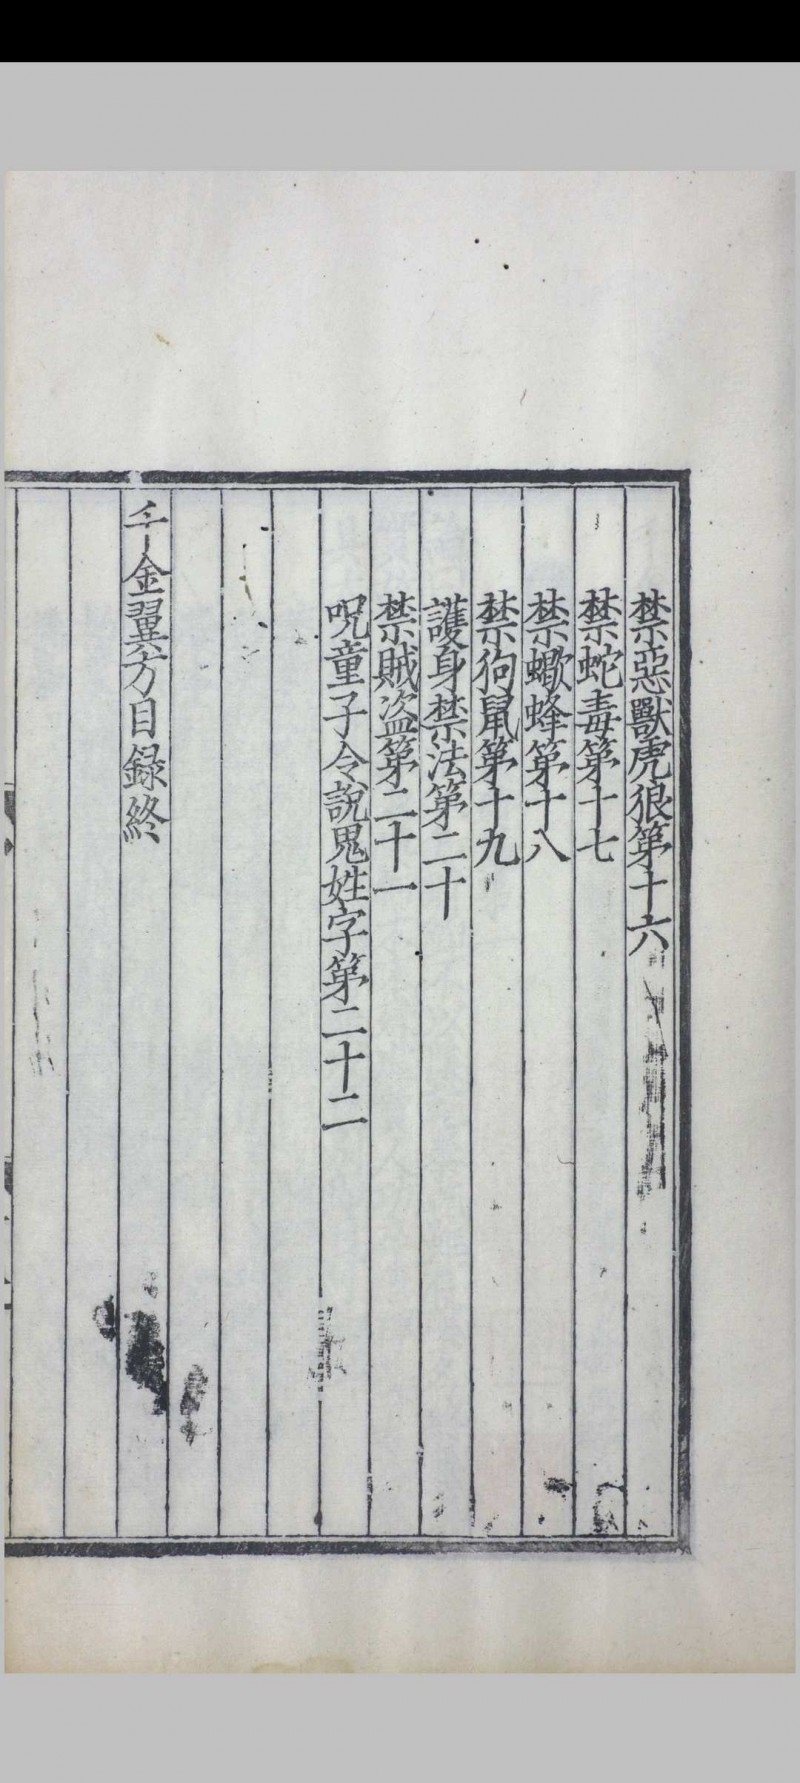 禁惡獸虎狼第十六
禁蛇毒第十七
禁蠍蜂第十八
禁狗鼠第十九
護身禁法第二十
禁賊盜第二十一
呪童子令說鬼姓字第二十二
千金翼方目録終